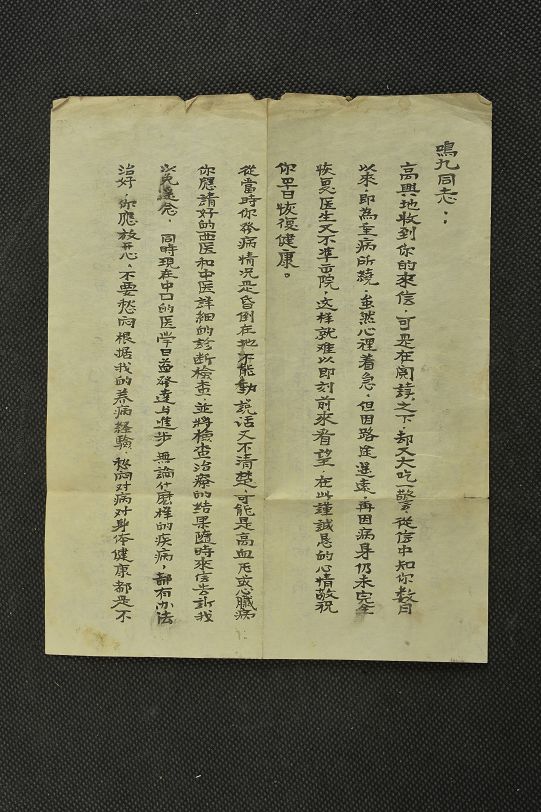 鳴九同志：
高興地收到你的來信，可是在閱讀之下，却又大吃一驚，從信中知你数月
以來，即為重病所繞，虽然心裡着急，但因路途遥遠，再因病身仍未完全
恢复，医生又不準出院，这样就难以即刻前來看望，在此謹誠恳的心情敬祝
你早日恢復健康。
從當時你發病情况是昏倒在地不能動，説话又不清楚，可能是高血压或心臟病
你應請好的西医和中医詳細的診断檢查，並將檢查治療的结果隨時來信告訴我
以免遠念，同時現在中囗的医学日益發達与進步，無論什麽样的疾病，都有办法
治好，你應放开心，不要愁闷，根据我的养病經驗，愁闷对病对身体健康都是不